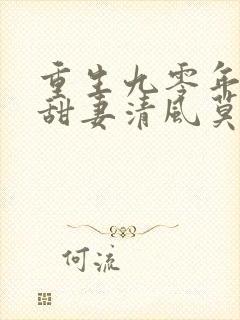 重生九零年
甜妻清风莫
何流